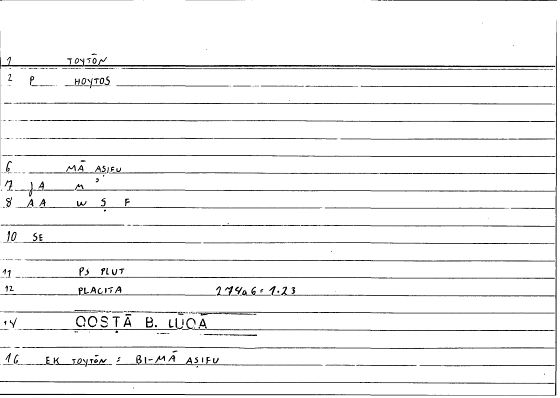 1 TOYTŌN
2 P HOYTOS
6 MĀ AṢIFU
7 JA M
8 AA W Ṣ F
10 SE
11 PS PLUT
12 PLACITA 274a6 = 1.23
14 QOSṬĀ B. LŪQĀ
16 EK TOYTŌN = BI-MĀ AṢIFU